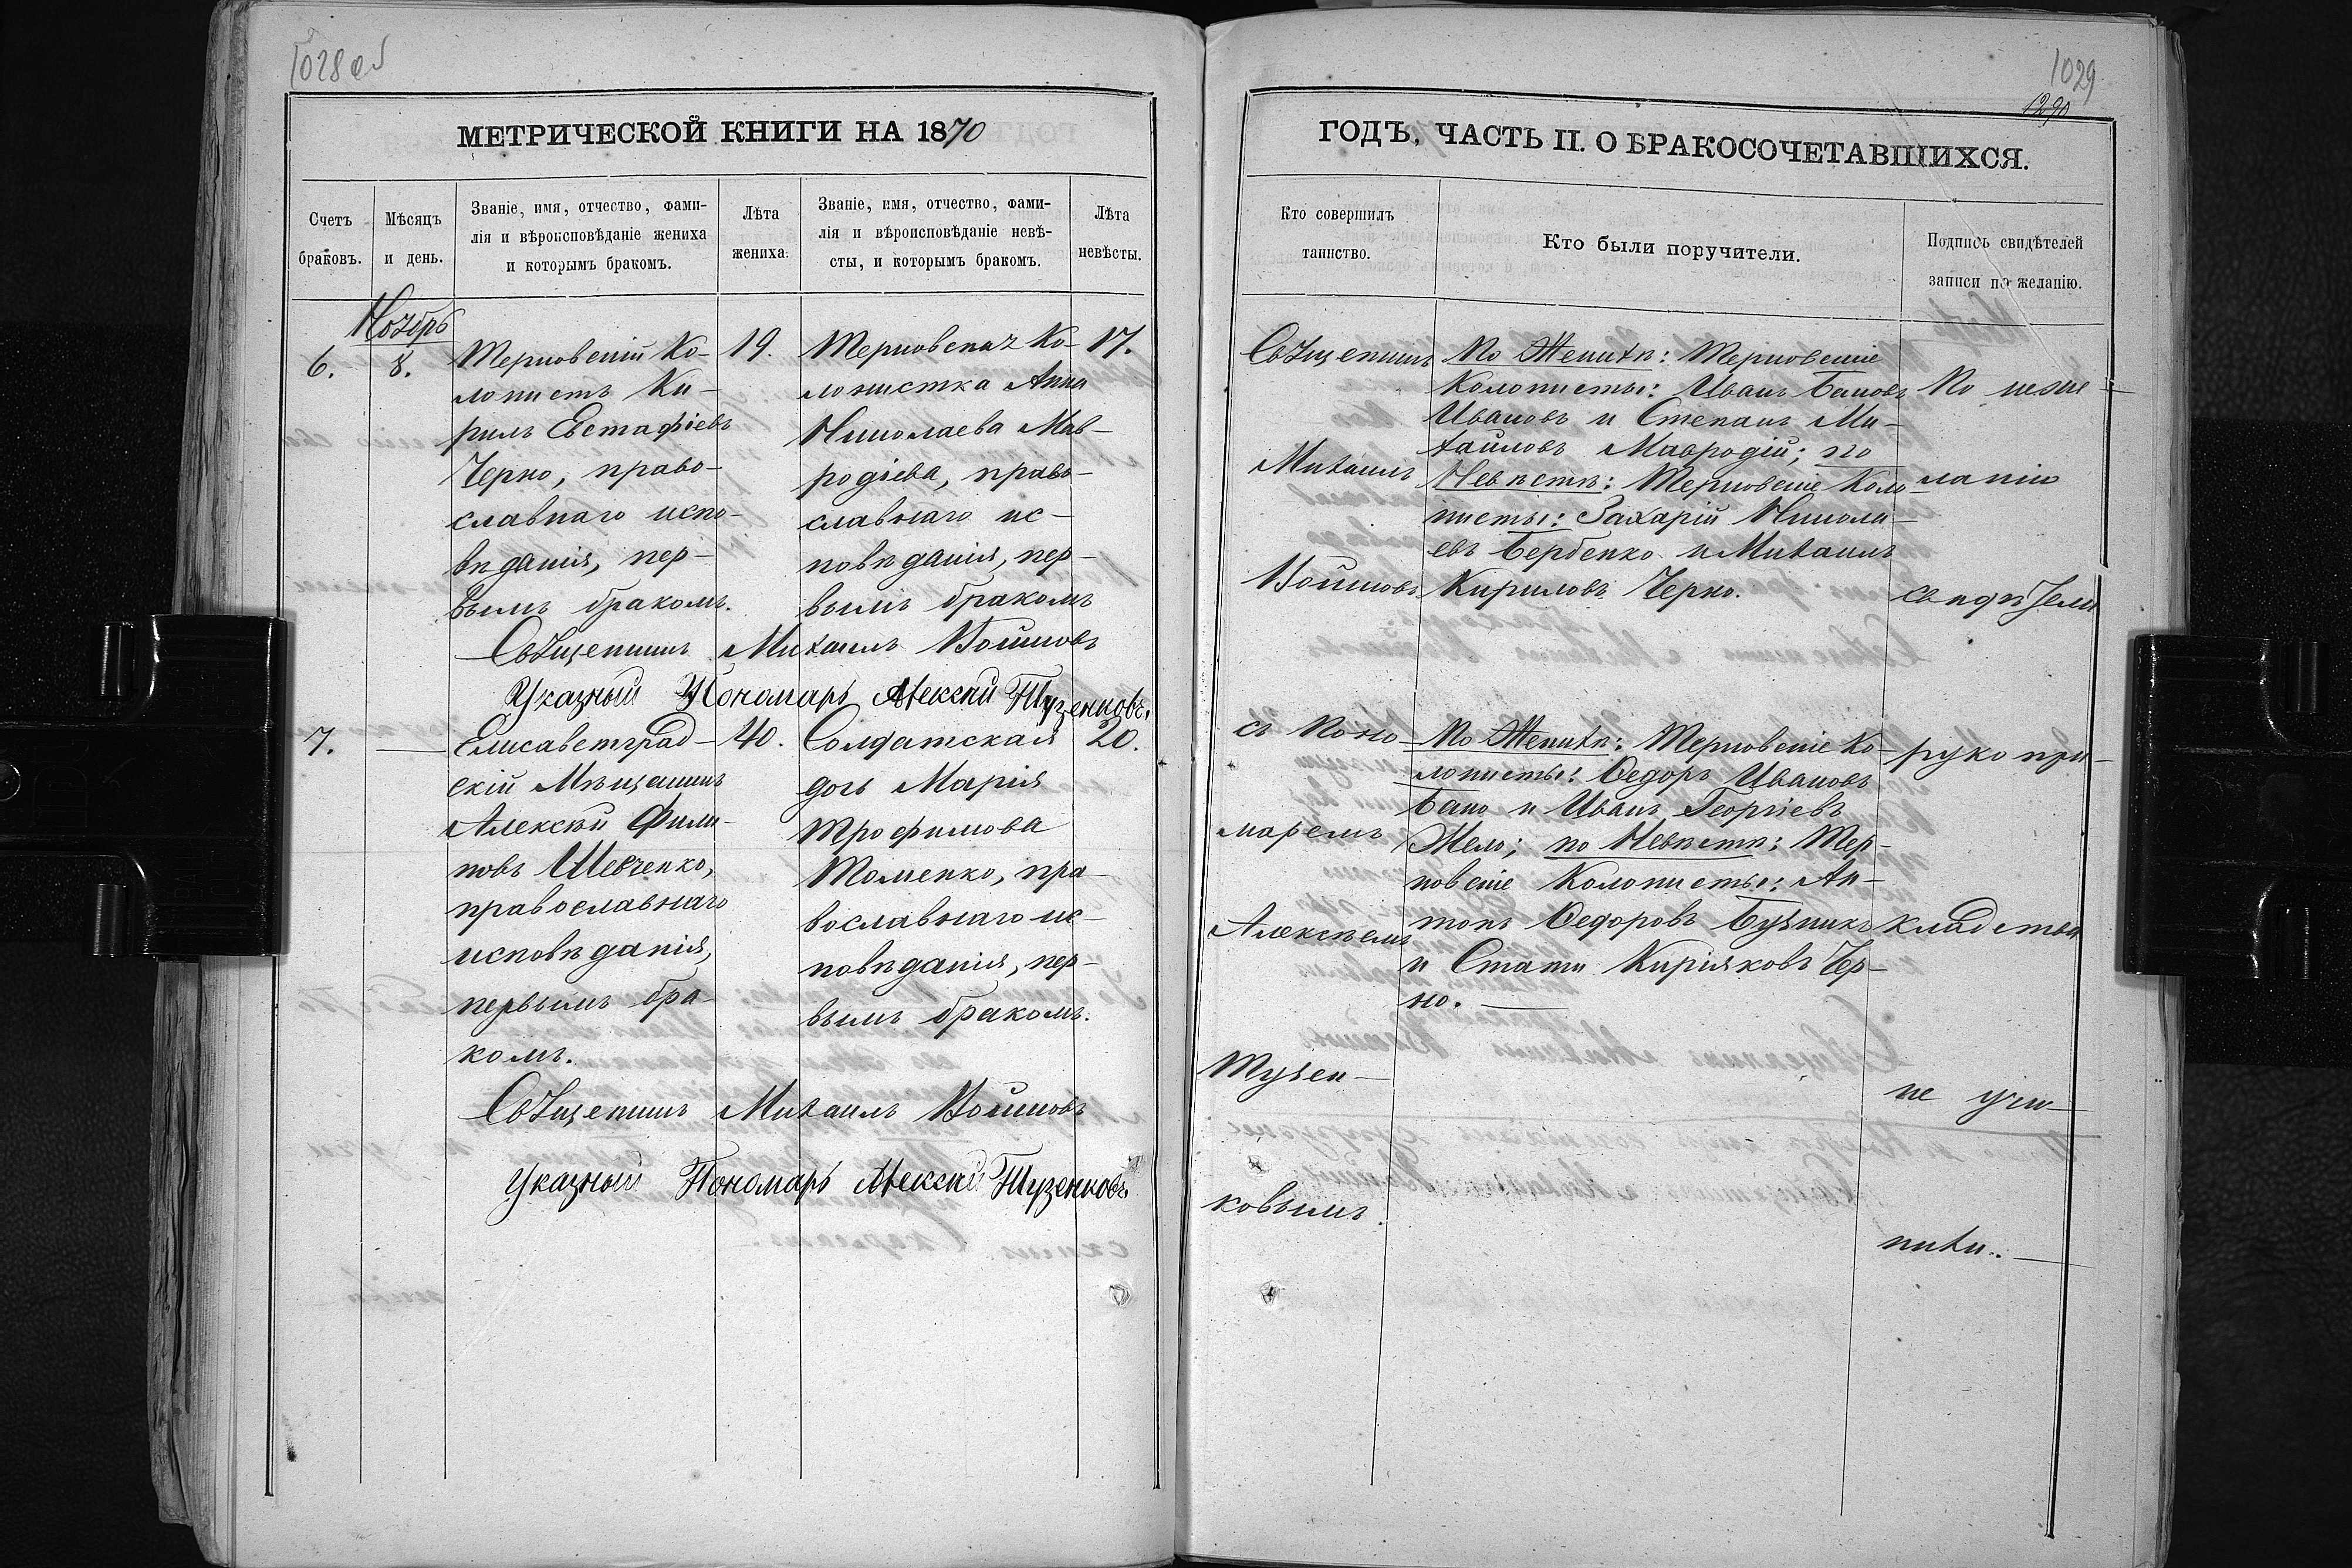 1028 об
МЕТРИЧЕСКОЙ КНИГИ НА 1870
Счетъ браковъ.
Мѣсяцъ и день.
Званіе, имя, отчество, фами-
лія и вѣроисповѣданіе жениха
и которымъ бракомъ.
Лѣта
жениха.
Званіе, имя, отчество, фами-
лія и вѣроисповѣданіе невѣ-
сты, и которымъ бракомъ.
Лѣта
невѣсты.
Ноябрь
6.
8.
Терновскій Ко-
лонистъ Ки-
рилъ Евстафіевъ
Черно, право-
славнаго испо-
вѣданія, пер-
вымъ бракомъ.
19.
Терновская Ко-
лонистка Анна
Николаева Мав-
родіева, право-
славнаго ис-
повѣданія, пер-
вымъ бракомъ
17.
Священникъ Михаилъ Войновъ
Указный Пономарь Алексѣй Тузенковъ.
7.
Елисаветград-
скій Мѣщанинъ
Алексѣй Фили-
повъ Шевченко,
православнаго
исповѣданія,
первымъ бра-
комъ.
40.
Солдатская
дочь Марія
Трофимова
Томенко, пра-
вославнаго ис-
повѣданія, пер-
вымъ бракомъ.
20.
Священникъ Михаилъ Войновъ
Указный Пономарь Алексѣй Тузенковъ
1029
1290
ГОДЪ, ЧАСТЬ II. О БРАКОСОЧЕТАВШИХСЯ.
Кто совершилъ
таинство.
Кто были поручители.
Подпись свидѣтелей
записи по желанію.
Священникъ
Михаилъ
Войновъ
съ Поно-
маремъ
Алексѣемъ
Тузен-
ковымъ.
По Женихѣ: Терновскіе
Колонисты: Иванъ Бановъ
Ивановъ и Степанъ Ми-
хайловъ Мавродій; по
Невѣстѣ: Терновскіе Коло-
нисты: Захарій Никола-
евъ Бербенко и Михаилъ
Кириловъ Черно.
По Женихѣ: Терновскіе Ко-
лонисты: Федоръ Ивановъ
Бано и Иванъ Георгіевъ
Жело; по Невѣстѣ: Тер-
новскіе Колонисты: Ан-
тонъ Федоровъ Бузникъ
и Стати Киріяковъ Чер-
но.
По неже-
ланію
свидѣтели
руко при-
кладства
не учи-
нили.